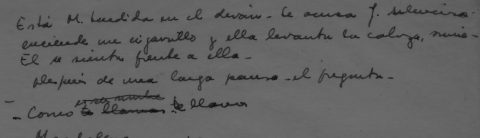 Está M. tendida en el diván - Se acerca J. silencioso
enciende un cigarrillo y ella levanta la cabeza,
Él se sienta frente a ella -
después de una larga pausa - él pregunta -
- Como te llamas